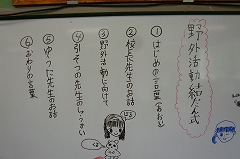 野外活動結だん式
①はじめの言葉(あお)
②校長先生のお話
③野外活動に向けて
④引そつの先生のしょうかい
⑤ゆうた先生のお話
⑥おわりの言葉